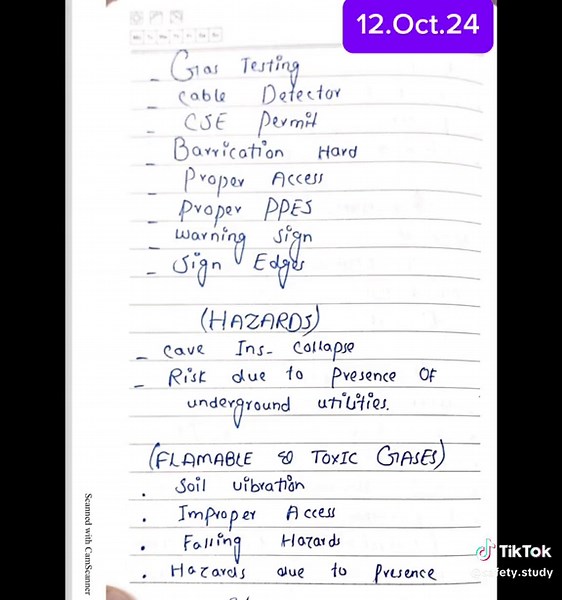 12.Oct.24
- Gas Testing
- Cable Detector
- CSE Permit
- Barrication Hard
- Proper Access
- Proper PPES
- Warning Sign
- Sign Edges
(HAZARDS)
- Cave Ins- Collapse
- Risk due to Presence OF
underground utilities.
(FLAMABLE & TOXIC GASES)
. Soil vibration
. Improper Access
. Falling Hazards
. Hazards due to Presence
Scanned with CamScanner
TikTok